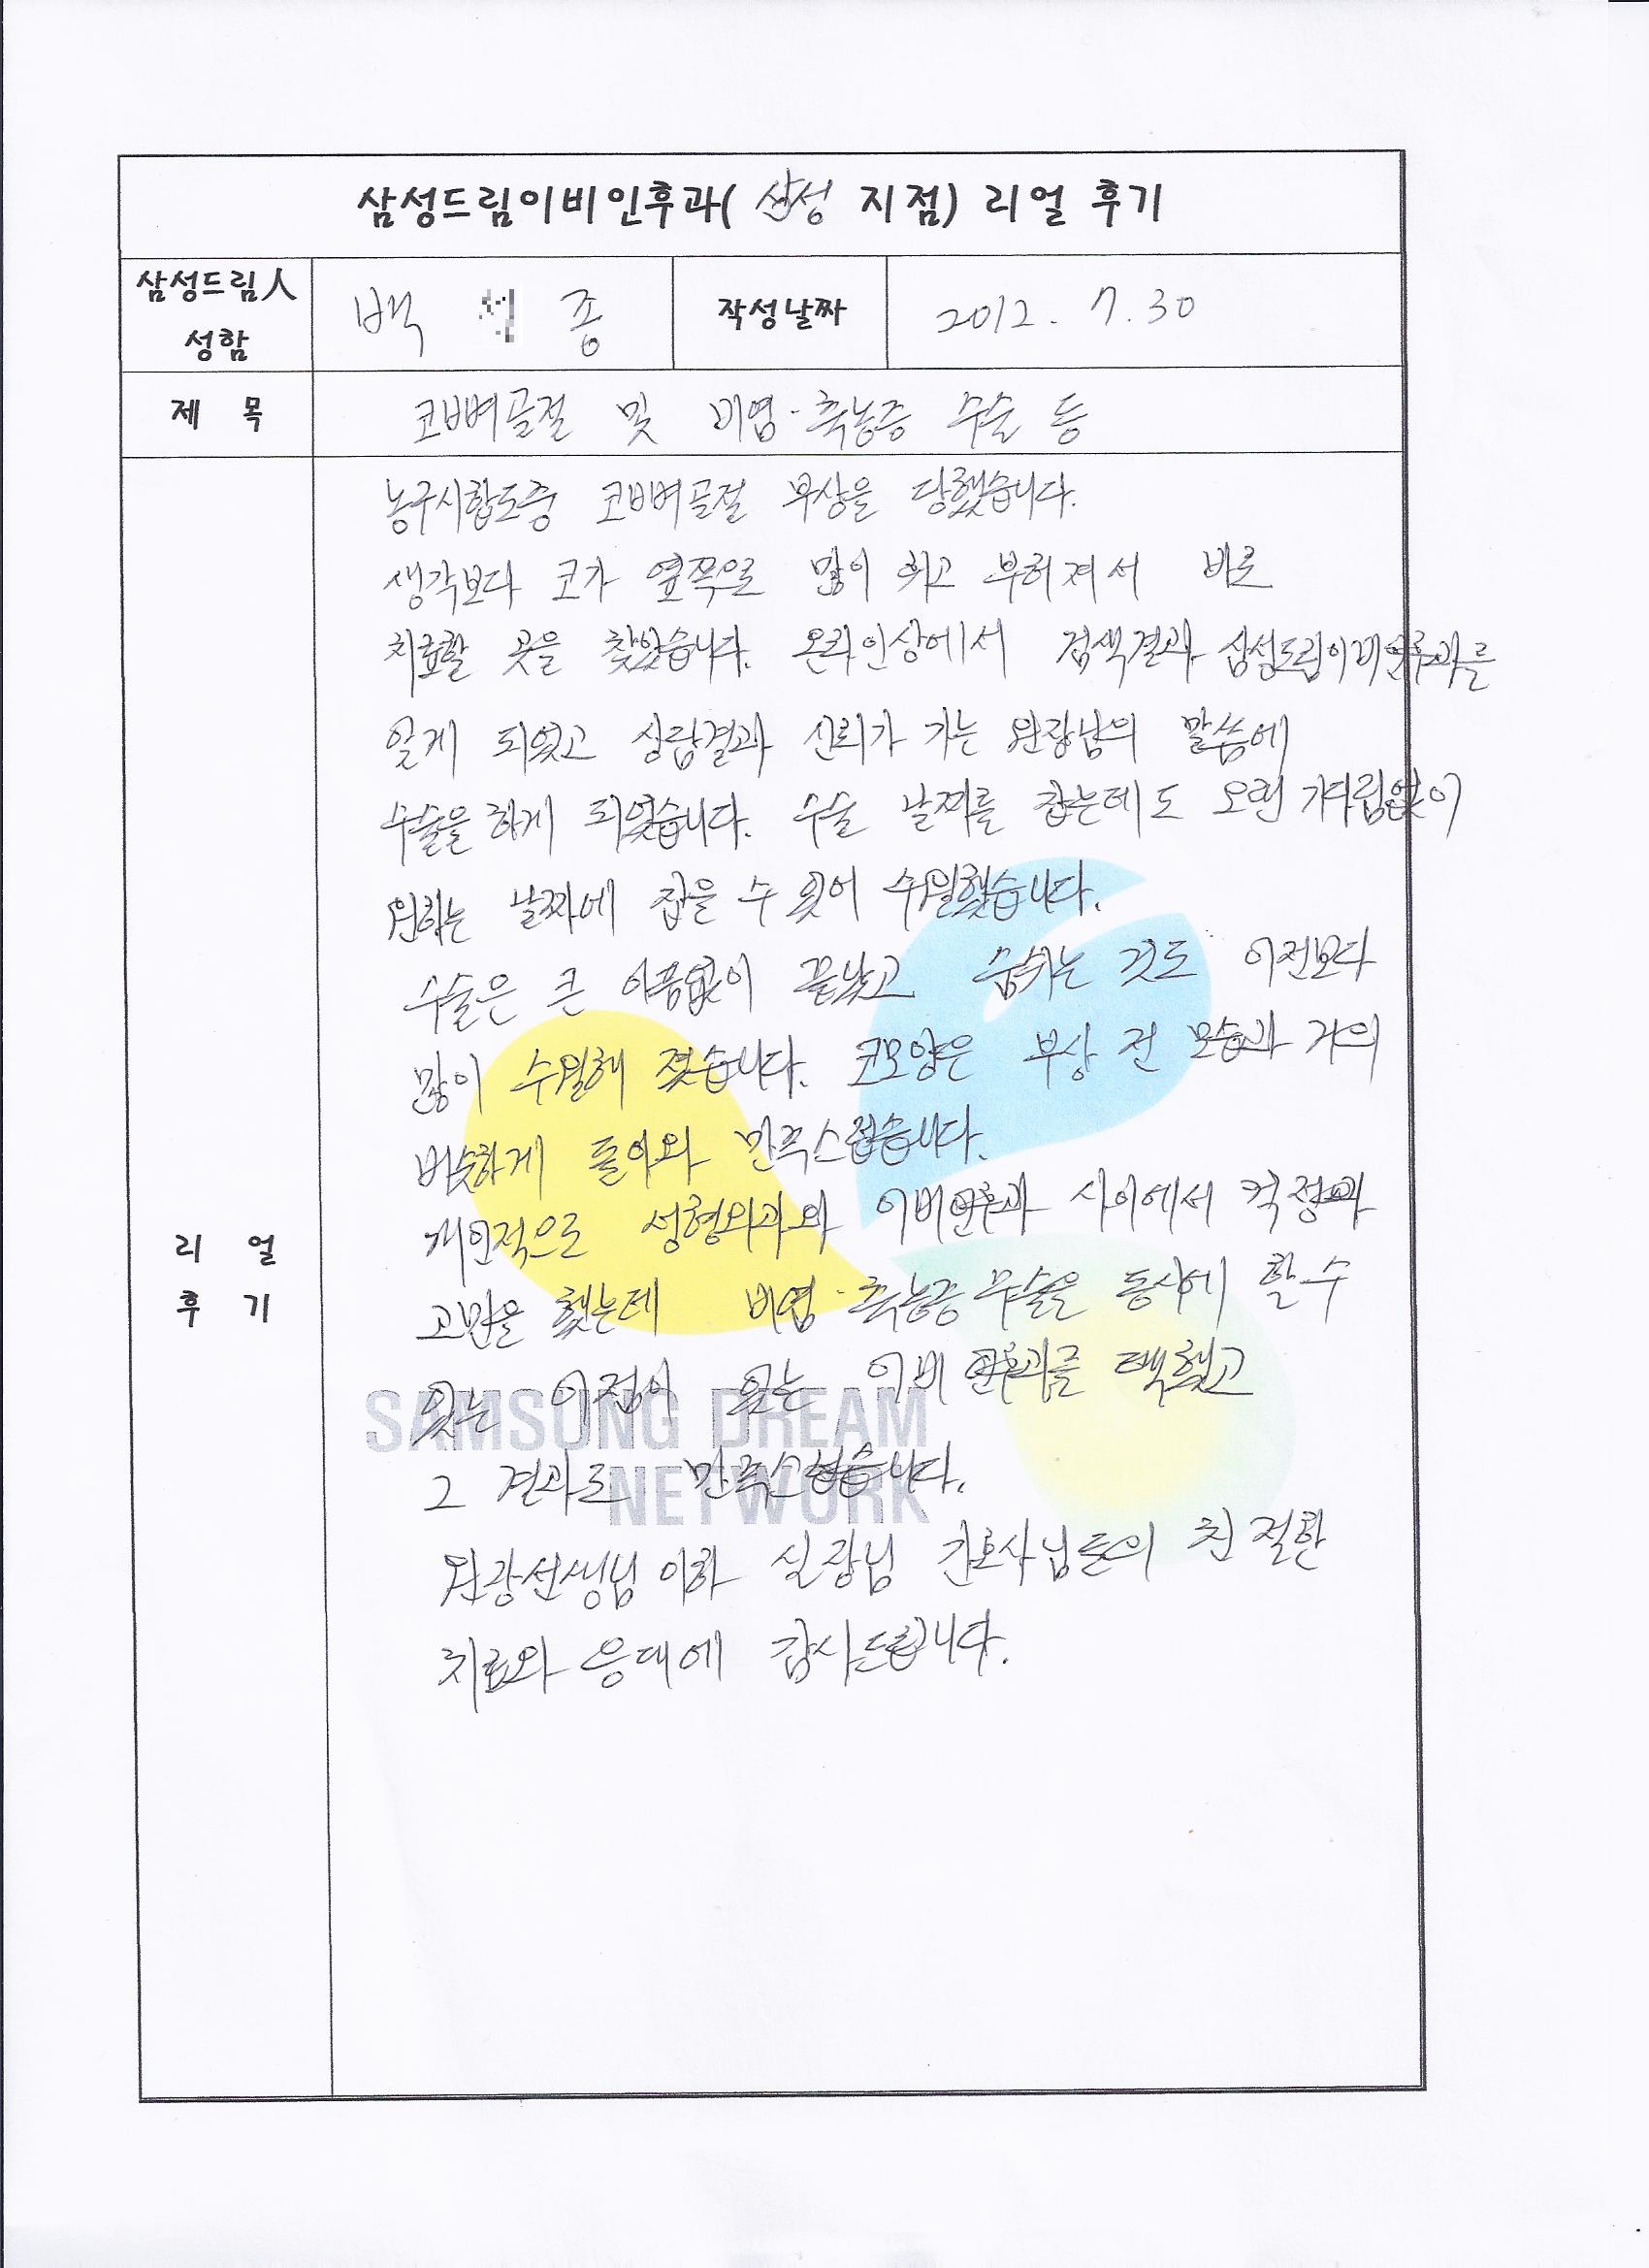 삼성드림이비인후과( 삼성 지점) 리얼 후기
삼성드림人 성함 백 종 작성날짜 2012. 7. 30
제 목 코뼈골절 및 비염·축농증 수술 등
리 얼 후 기
농구시합도중 코뼈골절 부상을 당했습니다.
생각보다 코가 옆쪽으로 많이 휘고 부허져서 바로
치료할 곳을 찾았습니다. 온라인상에서 검색결과 삼성드림이비인후과를
알게 되었고 상담결과 신뢰가 가는 원장님의 말씀에
수술을 하게 되었습니다. 수술 날짜를 잡는데도 오랜 기다림없이
원하는 날짜에 잡을 수 있어 수월했습니다.
수술은 큰 아픔없이 끝났고 숨쉬는 것도 이전보다
많이 수월해 졌습니다. 코모양은 부상 전 모습과 거의
비슷하게 돌아와 만족스럽습니다.
개인적으로 성형외과와 이비인후과 사이에서 걱정과
고민을 했는데 비염·축농증 수술을 동시에 할 수
있는 이점이 있는 이비인후과를 택했고
그 결과로 만족스럽습니다.
원장선생님 이하 실장님 간호사님들의 친절한
치료와 응대에 감사드립니다.
SAMSUNG DREAM
NETWORK